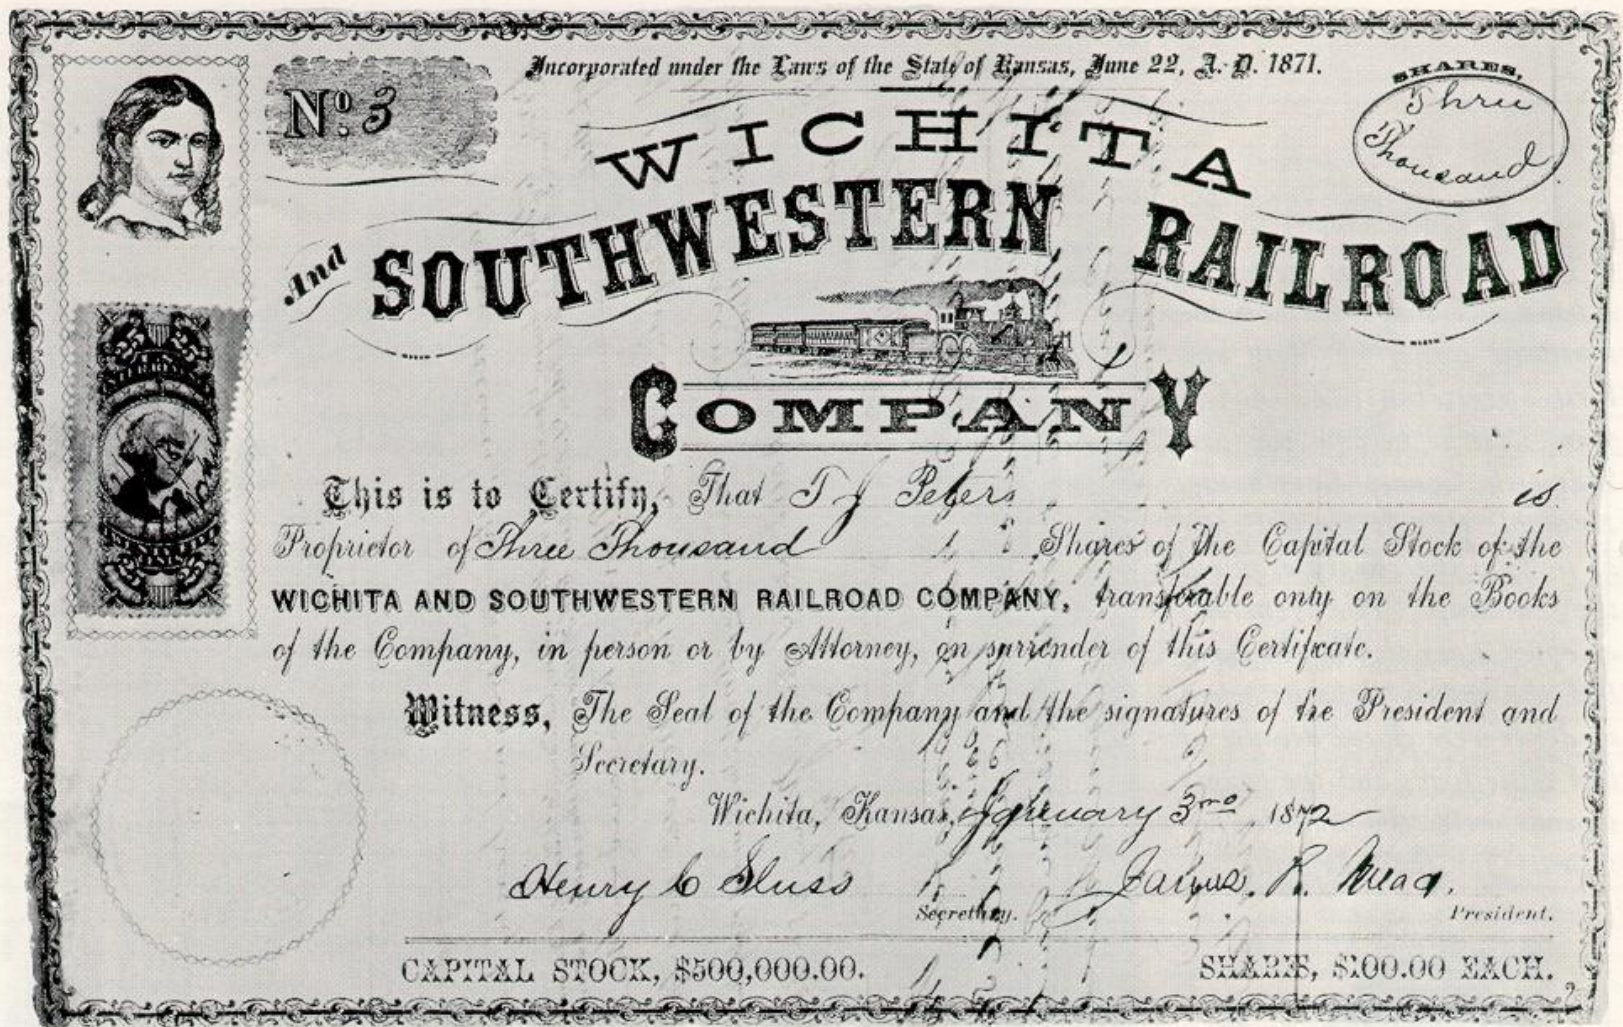 Incorporated under the Laws of the State of Kansas, June 22, A. D. 1871.
No. 3
SHARES,
Three
Thousand
WICHITA
And SOUTHWESTERN RAILROAD
COMPANY
This is to Certify, That T J Peters is
Proprietor of Three Thousand Shares of the Capital Stock of the
WICHITA AND SOUTHWESTERN RAILROAD COMPANY, transferable only on the Books
of the Company, in person or by Attorney, on surrender of this Certificate.
Witness, The Seal of the Company and the signatures of the President and
Secretary.
Wichita, Kansas, January 3 1872
Henry C Sluss James R. Mead.
Secretary. President.
CAPITAL STOCK, $500,000.00. SHARES, $100.00 EACH.